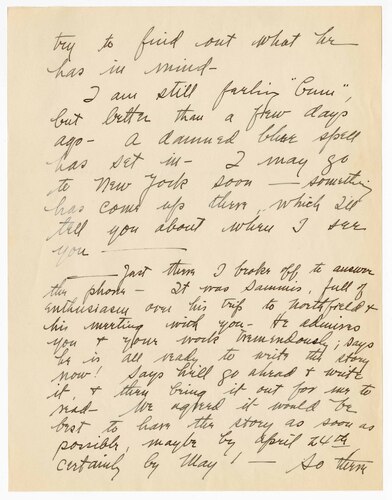 try to find out what he
has in mind-
I am still feeling "bum",
but better than a few days
ago- A damned blue spell
has set in- I may go
to New York soon — something
has come up there, which I'll
tell you about when I see
you —
— Just then I broke off to answer
the phone- It was Sammis, full of
enthusiasm over his trip to Northfield &
his meeting with you- He admires
you & your work tremendously; says
he is all ready to write the story
now! Says he'll go ahead & write
it, & then bring it out for me to
read- We agreed it would be
best to have the story as soon as
possible, maybe by April 24th
certainly by May 1 — So then